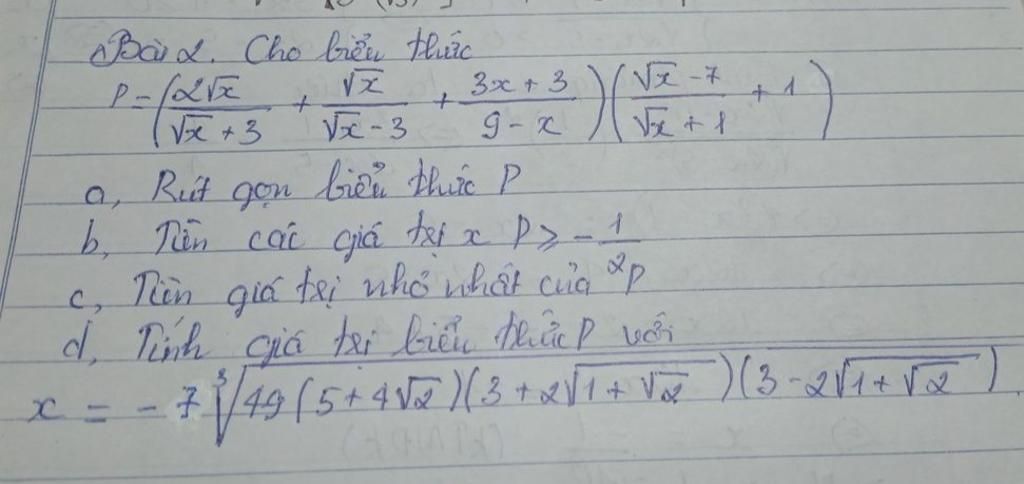 Bài 2. Cho biểu thức
P = (2√x / (√x + 3) + √x / (√x - 3) + (3x + 3) / (9 - x)) ((√x - 7) / (√x + 1) + 1)
a, Rút gọn biểu thức P
b, Tìm các giá trị x P ≥ - 1/2
c, Tìm giá trị nhỏ nhất của P
d, Tính giá trị biểu thức P với
x = - 7 ∛(49 (5 + 4√2) (3 + 2√(1 + √2)) (3 - 2√(1 + √2)))